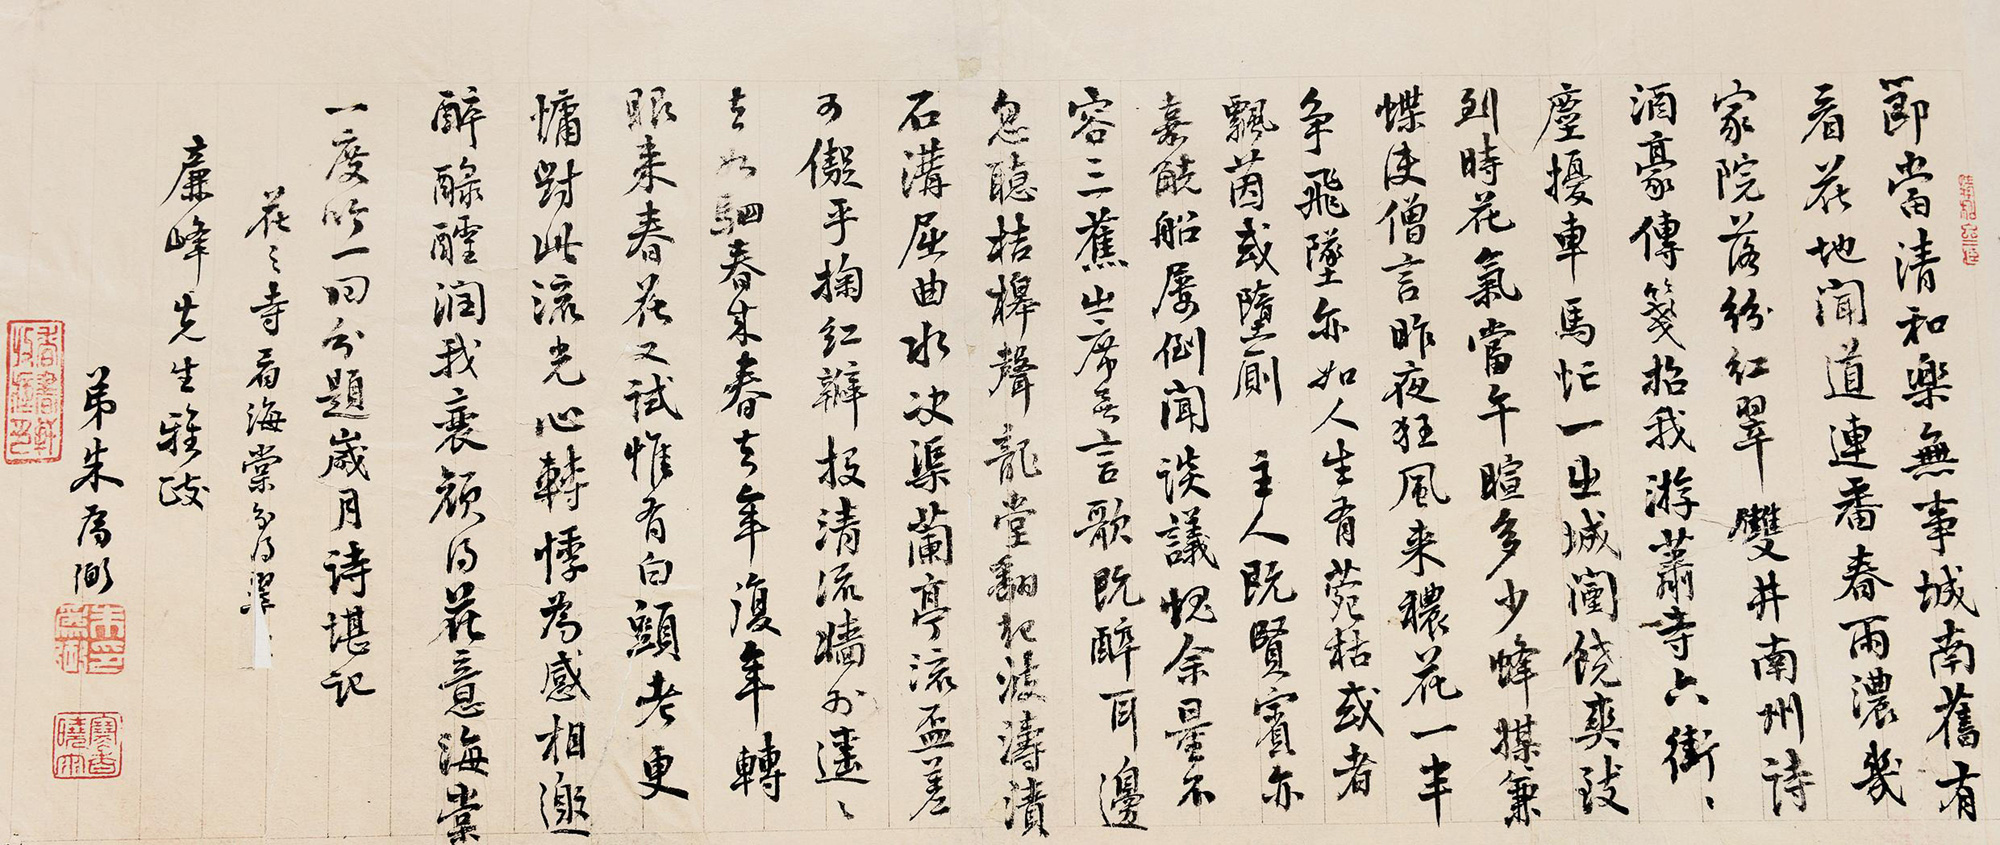 節當清和樂無事城南舊有
看花地聞道連番春雨濃幾
家院落紛紅翠雙井南州詩
酒豪傳箋招我游蕭寺六街
塵擾車馬忙一出城闉饒爽致
到時花氣當午暄多少蜂媒兼
蝶使僧言昨夜狂風来穠花一半
争飛墜亦如人生有菀枯或者
飄茵或墮厠主人既賢賓亦
嘉觥船屡倒聞談議愧余量不
容三蕉出席無言歌既醉耳邊
忽聽桔槹聲龍堂翻起波濤漬
石溝屈曲水决渠蘭亭流盃差
可儗乎掬紅瓣投清流墙外遥〻
去如駟春来春去年復年轉
眼来春花又試惟有白頭老更
慵對此流光心轉悸為感相邀
醉醁醽润我衰顔得花意海棠
一度吟一回分題歲月詩堪記
花之寺看海棠分得
廉峰先生雅政
弟朱爲弼
朱爲弼印